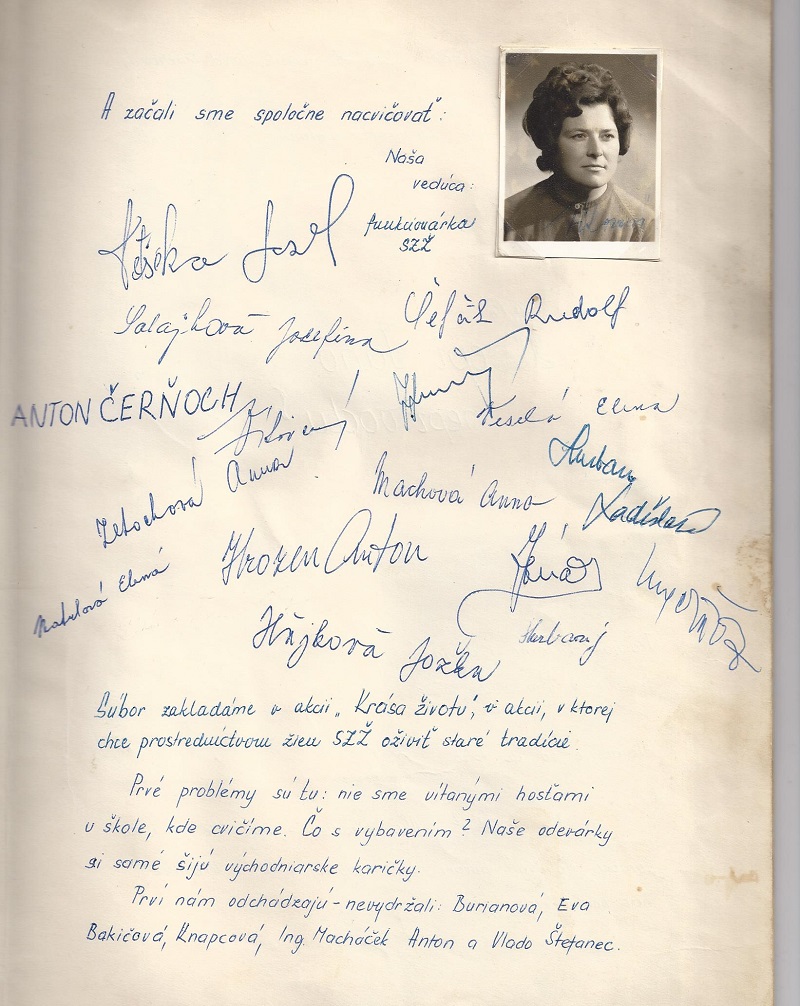 A začali sme spoločne nacvičovať:
Naša
vedúca:
funkcionárka
SZŽ
Josef
Salajková Jozefína
Rudolf
ANTON ČERŇOCH
Veselá Elena
Zetochová Anna
Machová Anna
Ladislav
Hrozen Anton
Elena
Hájková Jožka
Súbor zakladáme v akcii „Krása životu", v akcii, v ktorej
chce prostredníctvom žien SZŽ oživiť staré tradície.
Prvé problémy sú tu: nie sme vítanými hosťami
v škole, kde cvičíme. Čo s vybavením? Naše odevárky
si samé šijú východniarske karičky.
Prví nám odchádzajú - nevydržali: Burianová, Eva
Bakičová, Knapcová, Ing. Macháček Anton a Vlado Štefanec.